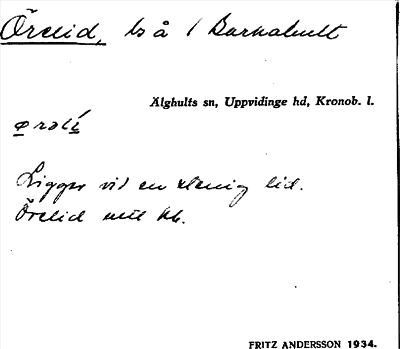 Örelid, ls å / Barkahult
Älghults sn, Uppvidinge hd, Kronob. l.
Ligger vid en stenig lid.
Örelid enl kk.
FRITZ ANDERSSON 1934.